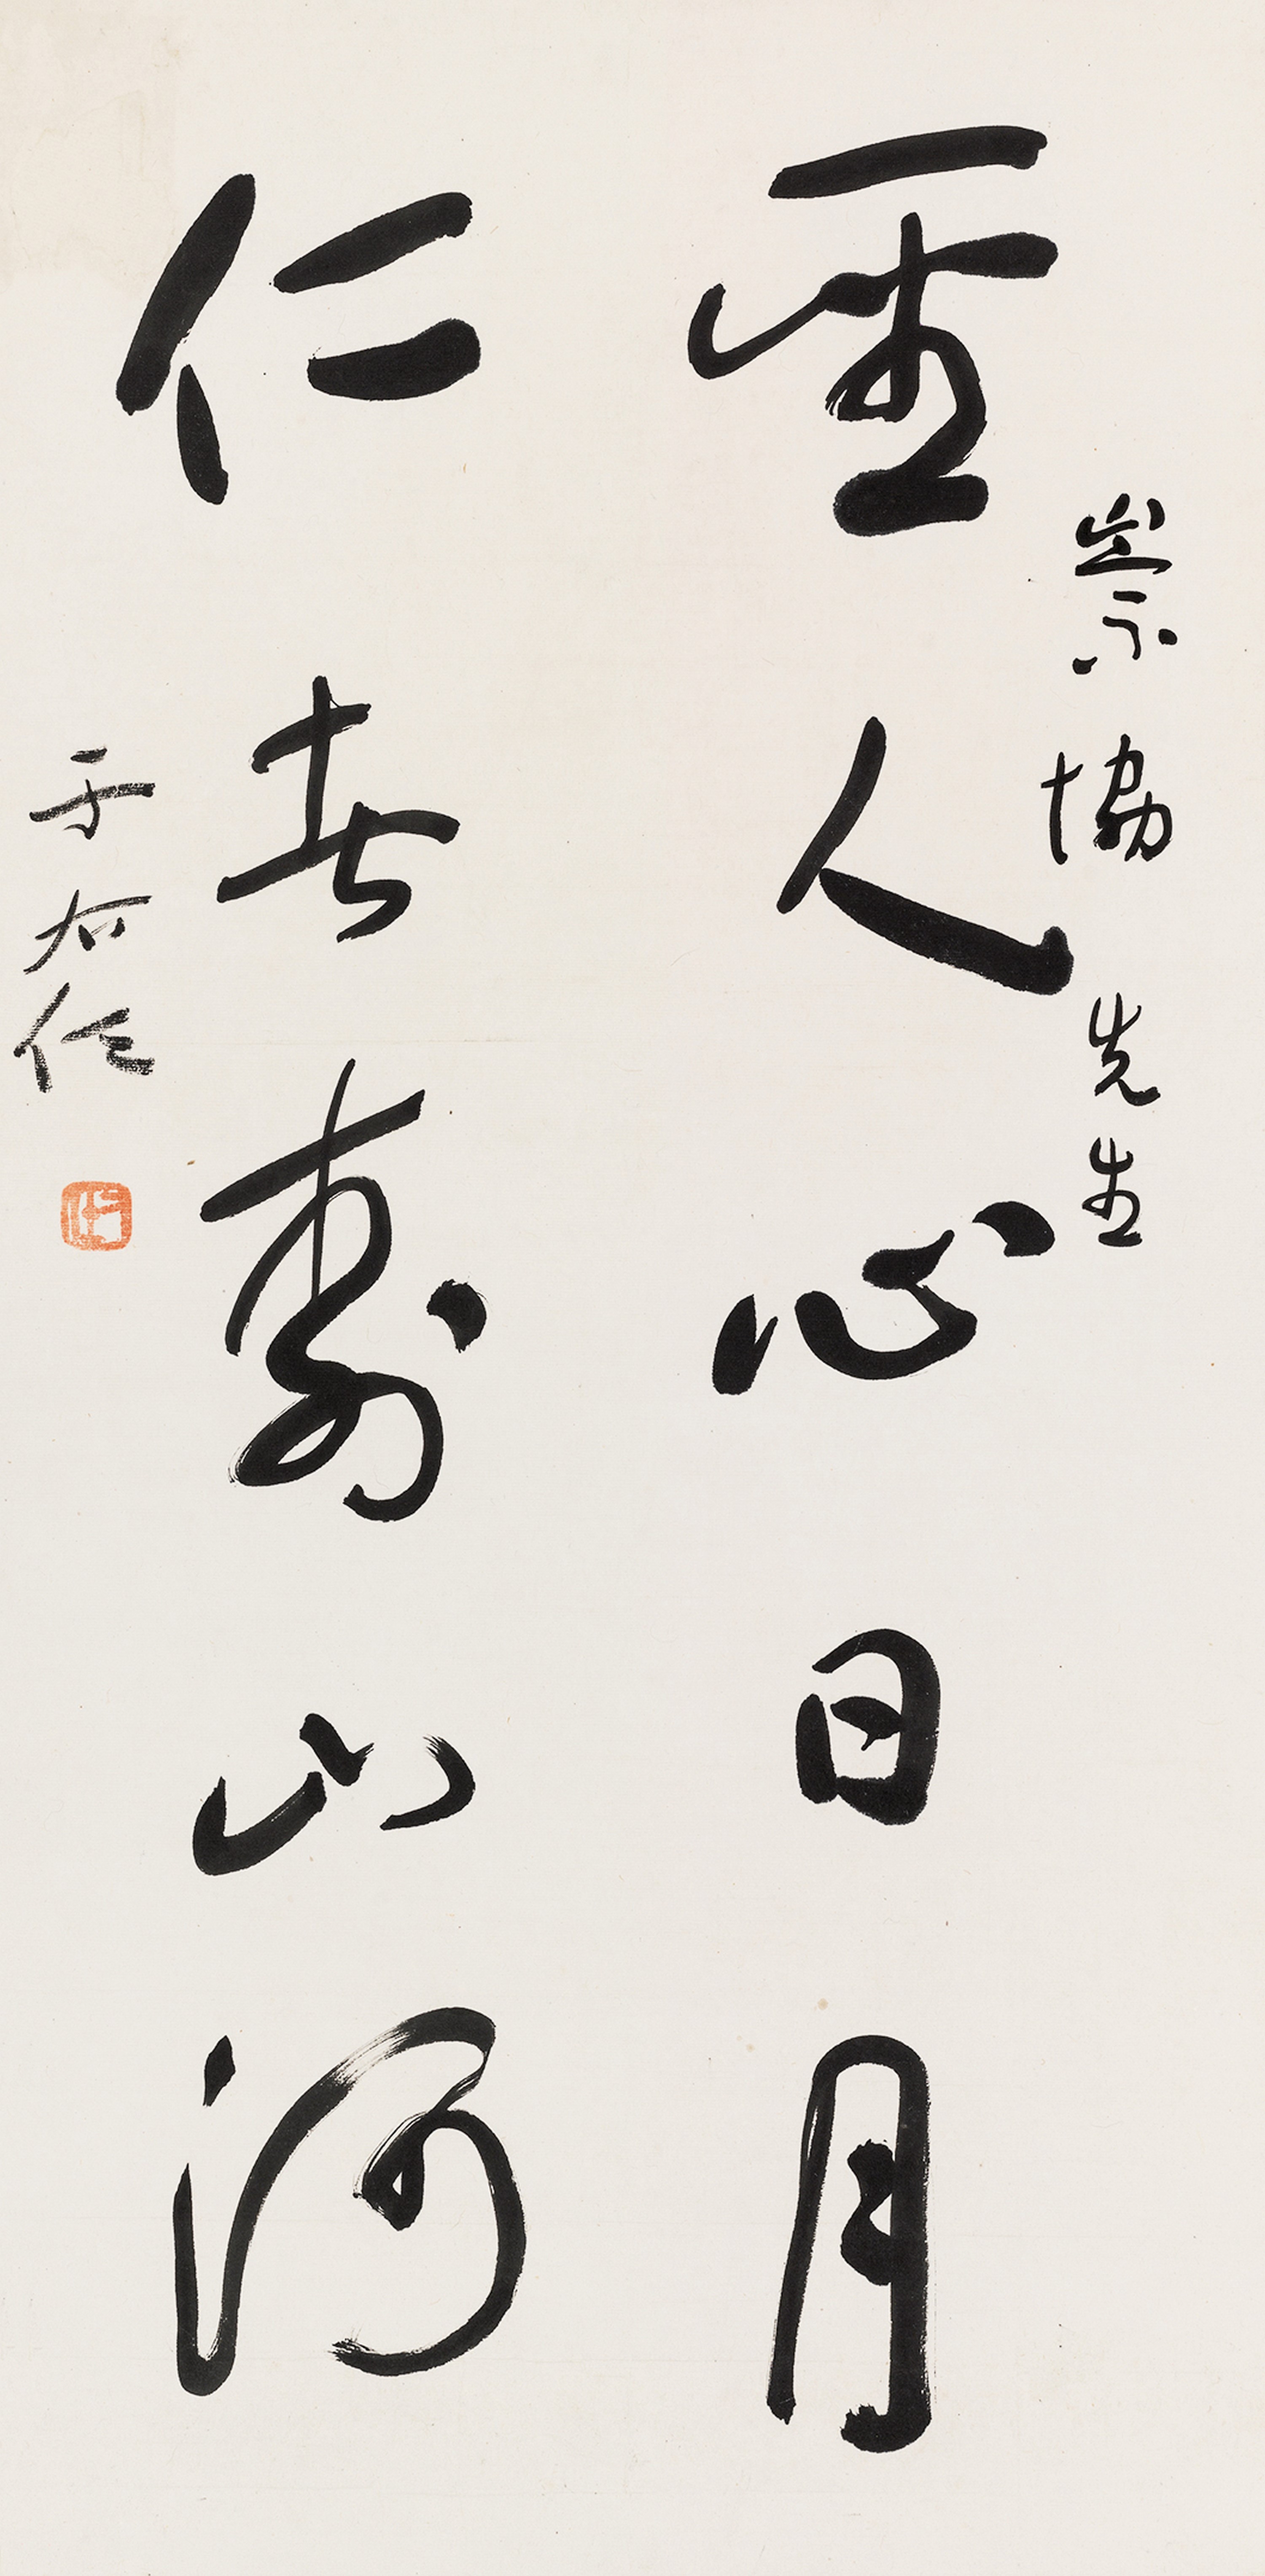 崇協先生
聖人心日月
仁者壽山河
于右任